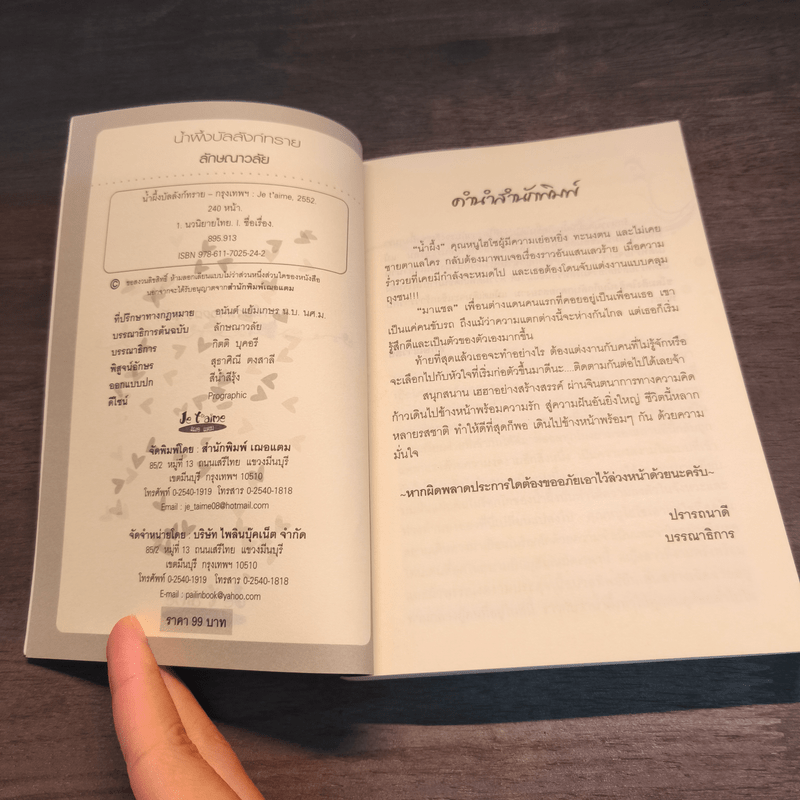 น้ำผึ้งบัลลังก์ทราย
ลักษณาวลัย
น้ำผึ้งบัลลังก์ทราย – กรุงเทพฯ : Je t'aime, 2552.
240 หน้า.
1. นวนิยายไทย. I. ชื่อเรื่อง.
895.913
ISBN 978-611-7025-24-2
© ขอสงวนลิขสิทธิ์ ห้ามลอกเลียนแบบไม่ว่าส่วนหนึ่งส่วนใดของหนังสือ
นอกจากจะได้รับอนุญาตจากสำนักพิมพ์เฌอแตม
ที่ปรึกษาทางกฎหมาย อนันต์ แย้มเกษร น.บ. นศ.ม.
บรรณาธิการต้นฉบับ ลักษณาวลัย
บรรณาธิการ กิตติ บุคอรี
พิสูจน์อักษร สุธาศิณี ดงสาลี
ออกแบบปก สีน้ำสีรุ้ง
ดีไซน์ Prographic
Je t'aime
เฌอ แตม
จัดพิมพ์โดย : สำนักพิมพ์ เฌอแตม
85/2 หมู่ที่ 13 ถนนเสรีไทย แขวงมีนบุรี
เขตมีนบุรี กรุงเทพฯ 10510
โทรศัพท์ 0-2540-1919 โทรสาร 0-2540-1818
Email : je_taime08@hotmail.com
จัดจำหน่ายโดย : บริษัท ไพลินบุ๊คเน็ต จำกัด
85/2 หมู่ที่ 13 ถนนเสรีไทย แขวงมีนบุรี
เขตมีนบุรี กรุงเทพฯ 10510
โทรศัพท์ 0-2540-1919 โทรสาร 0-2540-1818
E-mail : pailinbook@yahoo.com
ราคา 99 บาท
คำนำสำนักพิมพ์
"น้ำผึ้ง" คุณหนูไฮโซผู้มีความเย่อหยิ่ง ทะนงตน และไม่เคย
ชายตาแลใคร กลับต้องมาพบเจอเรื่องราวอันแสนเลวร้าย เมื่อความ
ร่ำรวยที่เคยมีกำลังจะหมดไป และเธอต้องโดนจับแต่งงานแบบคลุม
ถุงชน!!!
"มาแชล" เพื่อนต่างแดนคนแรกที่คอยอยู่เป็นเพื่อนเธอ เขา
เป็นแค่คนขับรถ ถึงแม้ว่าความแตกต่างนี้จะห่างกันไกล แต่เธอก็เริ่ม
รู้สึกดีและเป็นตัวของตัวเองมากขึ้น
ท้ายที่สุดแล้วเธอจะทำอย่างไร ต้องแต่งงานกับคนที่ไม่รู้จักหรือ
จะเลือกไปกับหัวใจที่เริ่มก่อตัวขึ้นมาดีนะ...ติดตามกันต่อไปได้เลยจ้า
สนุกสนาน เฮฮาอย่างสร้างสรรค์ ผ่านจินตนาการทางความคิด
ก้าวเดินไปข้างหน้าพร้อมความรัก สู่ความฝันอันยิ่งใหญ่ ชีวิตนี้หลาก
หลายรสชาติ ทำให้ดีที่สุดก็พอ เดินไปข้างหน้าพร้อมๆ กัน ด้วยความ
มั่นใจ
~หากผิดพลาดประการใดต้องขออภัยเอาไว้ล่วงหน้าด้วยนะครับ~
ปรารถนาดี
บรรณาธิการ